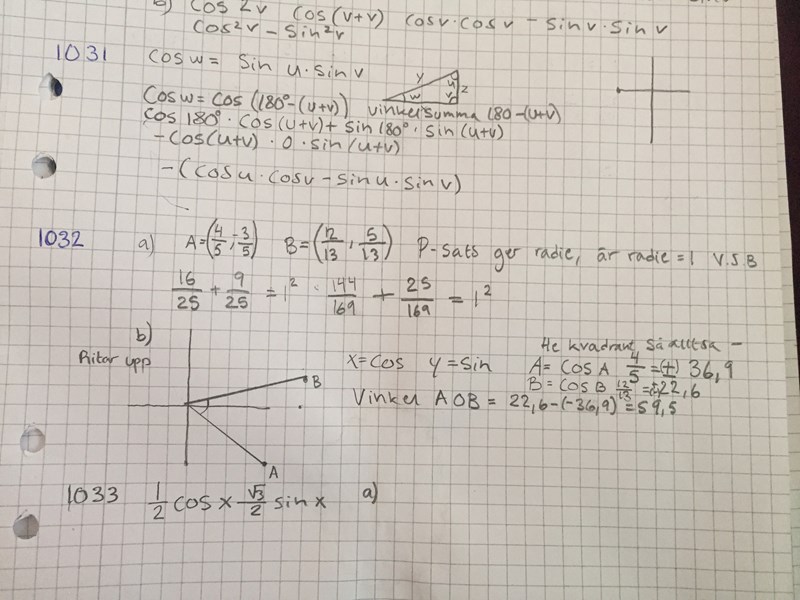 b) Cos 2v Cos(v+v) cosv·cosv - sinv·sinv
Cos²v - Sin²v
1031 Cosw = Sin u·sinv
y u z w v
Cosw = cos (180°-(u+v)) vinkelsumma 180-(u+v)
Cos 180°·cos(u+v)+sin 180°·sin(u+v)
-Cos(u+v)·0·sin(u+v)
-(cosu·cosv-sinu·sinv)
1032 a) A=(4/5, -3/5) B=(12/13, 5/13) P-sats ger radie, är radie=1 V.S.B
16/25 + 9/25 = 1² · 144/169 + 25/169 = 1²
b)
Ritar upp
4e kvadrant, så alltså -
x=cos y=sin A= cos A 4/5 =(±) 36,9
B= cos B 12/13 =±22,6
B
Vinkel AOB = 22,6-(-36,9)=59,5
A
1033 1/2 cos x √3/2 sin x a)